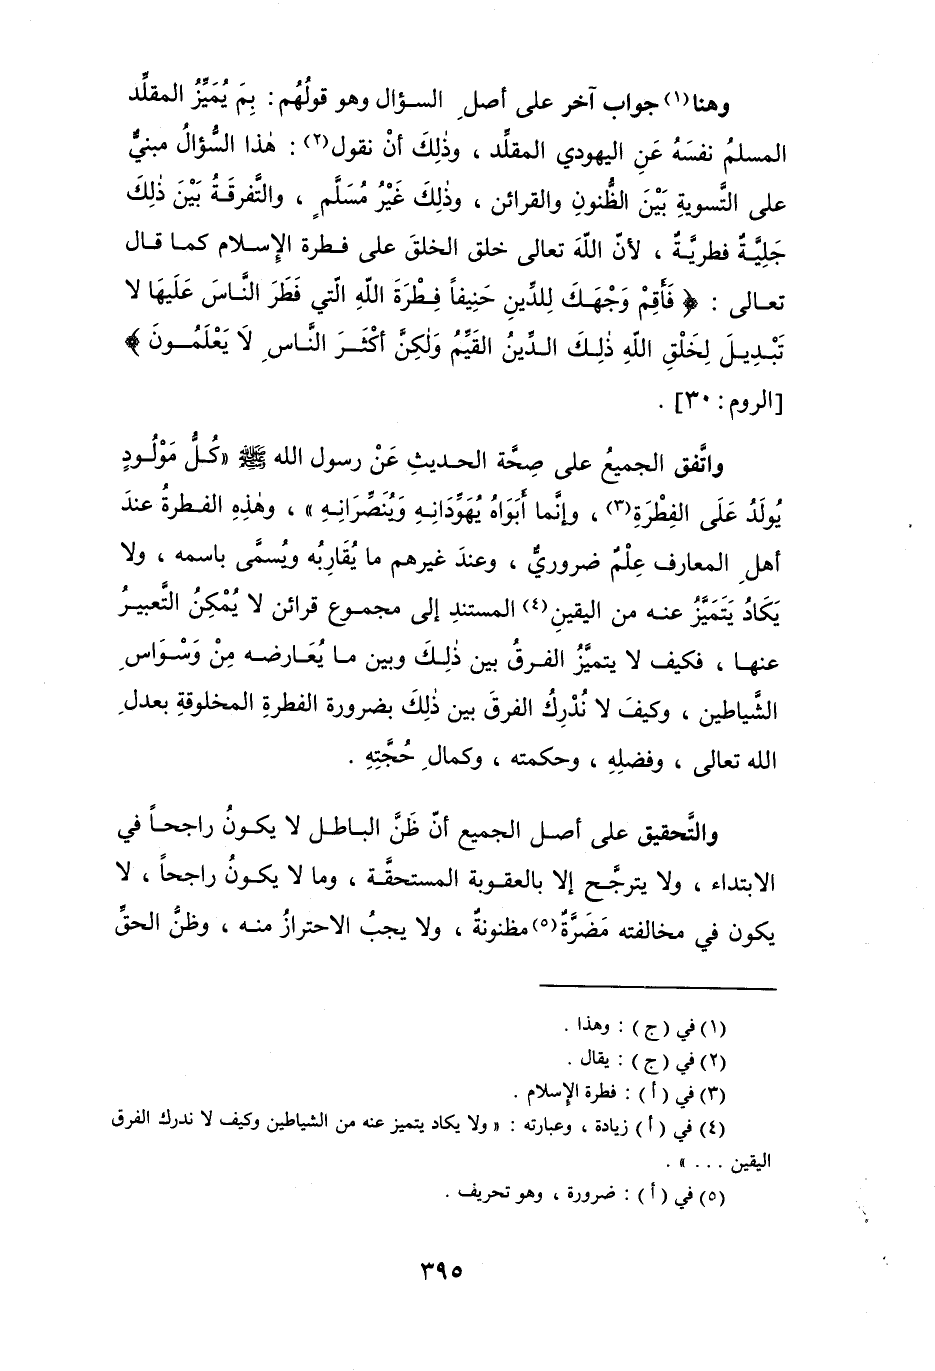 وهنا(١) جواب آخر على أصلِ السؤال وهو قولُهُم: بِمَ يُمَيِّزُ المقلِّد
المسلمُ نفسَهُ عَنِ اليهودي المقلِّد ، وذٰلِكَ أنْ نقول(٢) : هٰذا السُّؤالُ مبنيٌّ
على التَّسويةِ بَيْنَ الظُّنونِ والقرائن ، وذٰلِكَ غَيْرُ مُسَلَّمٍ ، والتَّفرقَةُ بَيْنَ ذٰلِكَ
جَلِيَّةٌ فطريَّةٌ ، لأنّ اللّهَ تعالى خلق الخلقَ على فطرة الإِسلام كما قال
تعالى : ﴿ فَأَقِمْ وَجْهَكَ لِلدِّينِ حَنِيفاً فِطْرَةَ اللّهِ الّتي فَطَرَ النَّاسَ عَلَيهَا لا
تَبْدِيلَ لِخَلْقِ اللّهِ ذلِكَ الدِّينُ القَيِّمُ وَلٰكِنَّ أكْثَرَ النَّاسِ لاَ يَعْلَمُونَ ﴾
[الروم: ٣٠] .
واتَّفق الجميعُ على صِحَّة الحديثِ عَنْ رسول الله ﷺ «كُلُّ مَوْلُودٍ
يُولَدُ عَلَى الفِطْرَةِ(٣) ، وإنَّما أَبَوَاهُ يُهَوِّدَانِهِ وَيُنَصِّرَانِهِ » ، وهٰذِهِ الفطرةُ عندَ
أهلِ المعارف عِلْمٌ ضروريٌّ ، وعندَ غيرهم ما يُقَارِبُه ويُسمَّى باسمه ، ولا
يَكَادُ يَتَمَيَّزُ عنه من اليقينِ(٤) المستندِ إلى مجموع قرائن لا يُمْكِنُ التَّعبيرُ
عنها ، فكيف لا يتميَّزُ الفرقُ بين ذٰلِكَ وبين ما يُعَارضه مِنْ وَسْوَاسِ
الشَّياطين ، وكيفَ لا نُدْرِكُ الفرقَ بين ذٰلِكَ بضرورة الفطرةِ المخلوقةِ بعدلِ
الله تعالى ، وفضلِهِ ، وحكمته ، وكمالِ حُجَّتِهِ .
والتَّحقيق على أصل الجميع أنّ ظَنَّ الباطل لا يكونُ راجحاً في
الابتداء ، ولا يترجَّح إلا بالعقوبة المستحقَّة ، وما لا يكونُ راجحاً ، لا
يكون في مخالفته مَضَرَّةٌ(٥) مظنونةٌ ، ولا يجبُ الاحترازُ منه ، وظنُّ الحقِّ
(١) في (ج) : وهذا .
(٢) في (ج) : يقال .
(٣) في (أ) : فطرة الإسلام .
(٤) في (أ) زيادة ، وعبارته : « ولا يكاد يتميز عنه من الشياطين وكيف لا ندرك الفرق
اليقين ... » .
(٥) في (أ) : ضرورة ، وهو تحريف .
٣٩٥